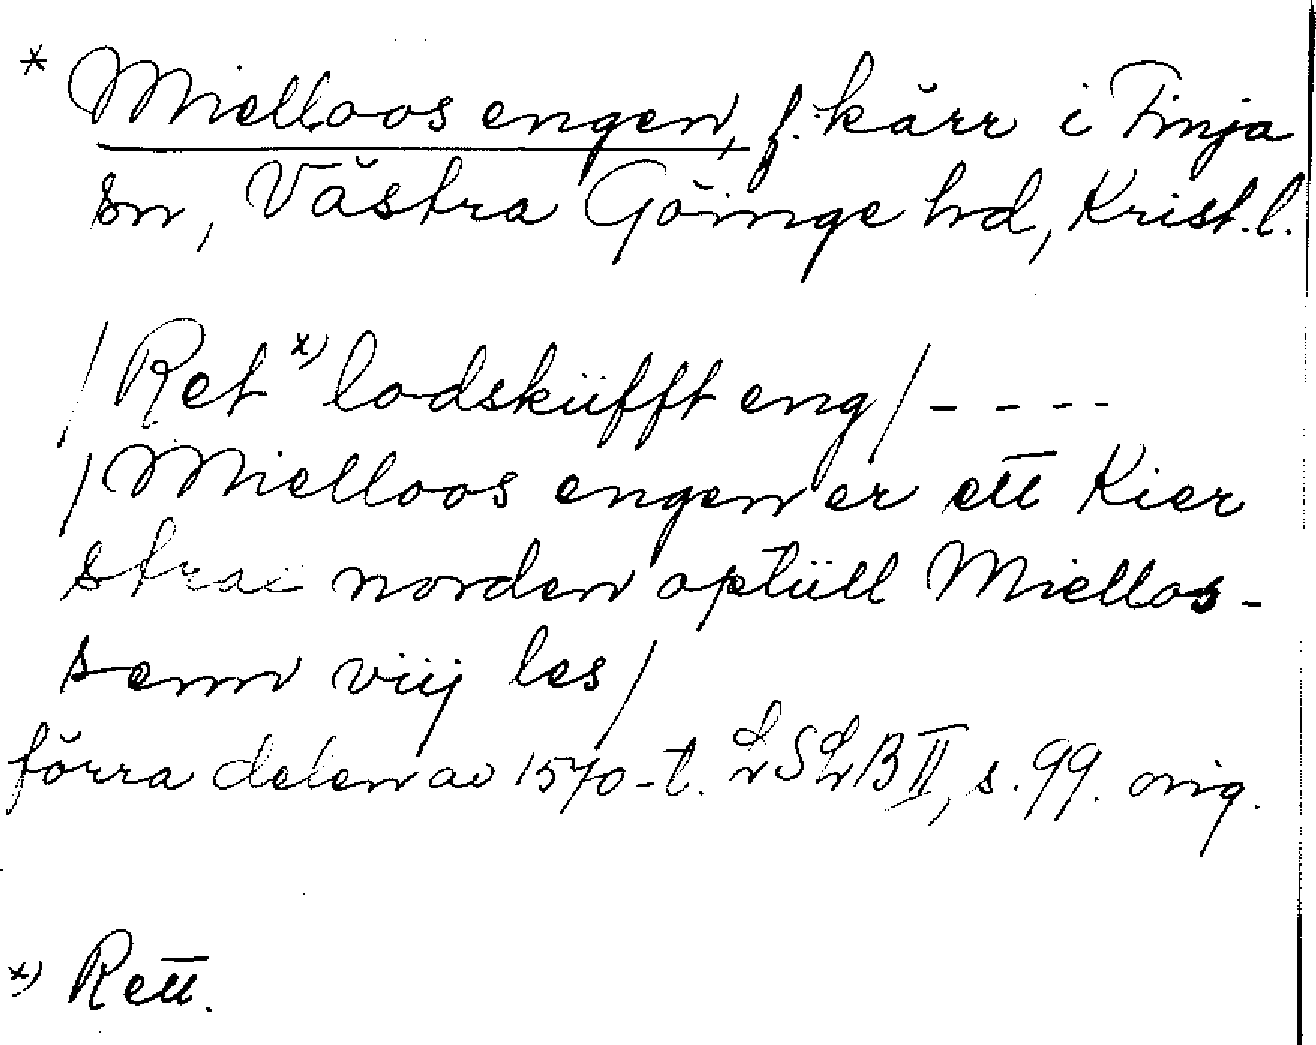 * Mielloos engen, f. kärr i Finja
sn, Västra Göinge hd, Krist. l.
/Ret x) lodsküfft eng/ - - - -
/Mielloos engen er ett Kier
strax norden optüll Miellos-
senn viij les/
förra delen av 1570-t. LSLB II, s. 99. orig.
x) Rett.